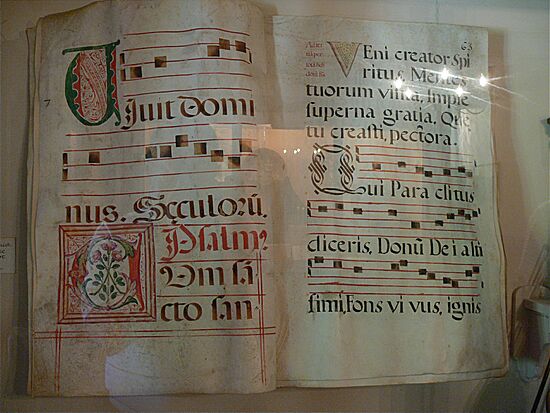 Viuit domi
nus. Sęculorũ.
Psalm?
CVm sã
cto san
63
VEni creator Spi
ritus, Mentes
tuorum visita, Imple
superna gratia, Quę
tu creasti, pectora.
QUi Para clitus
diceris, Donũ De i alti
simi, Fons vi vus, ignis